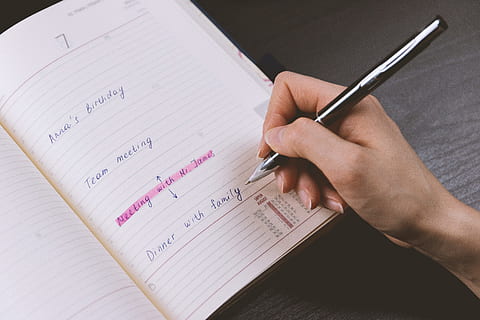 7
Anna's Birthday
Team meeting
Meeting with Mr. James
Dinner with family